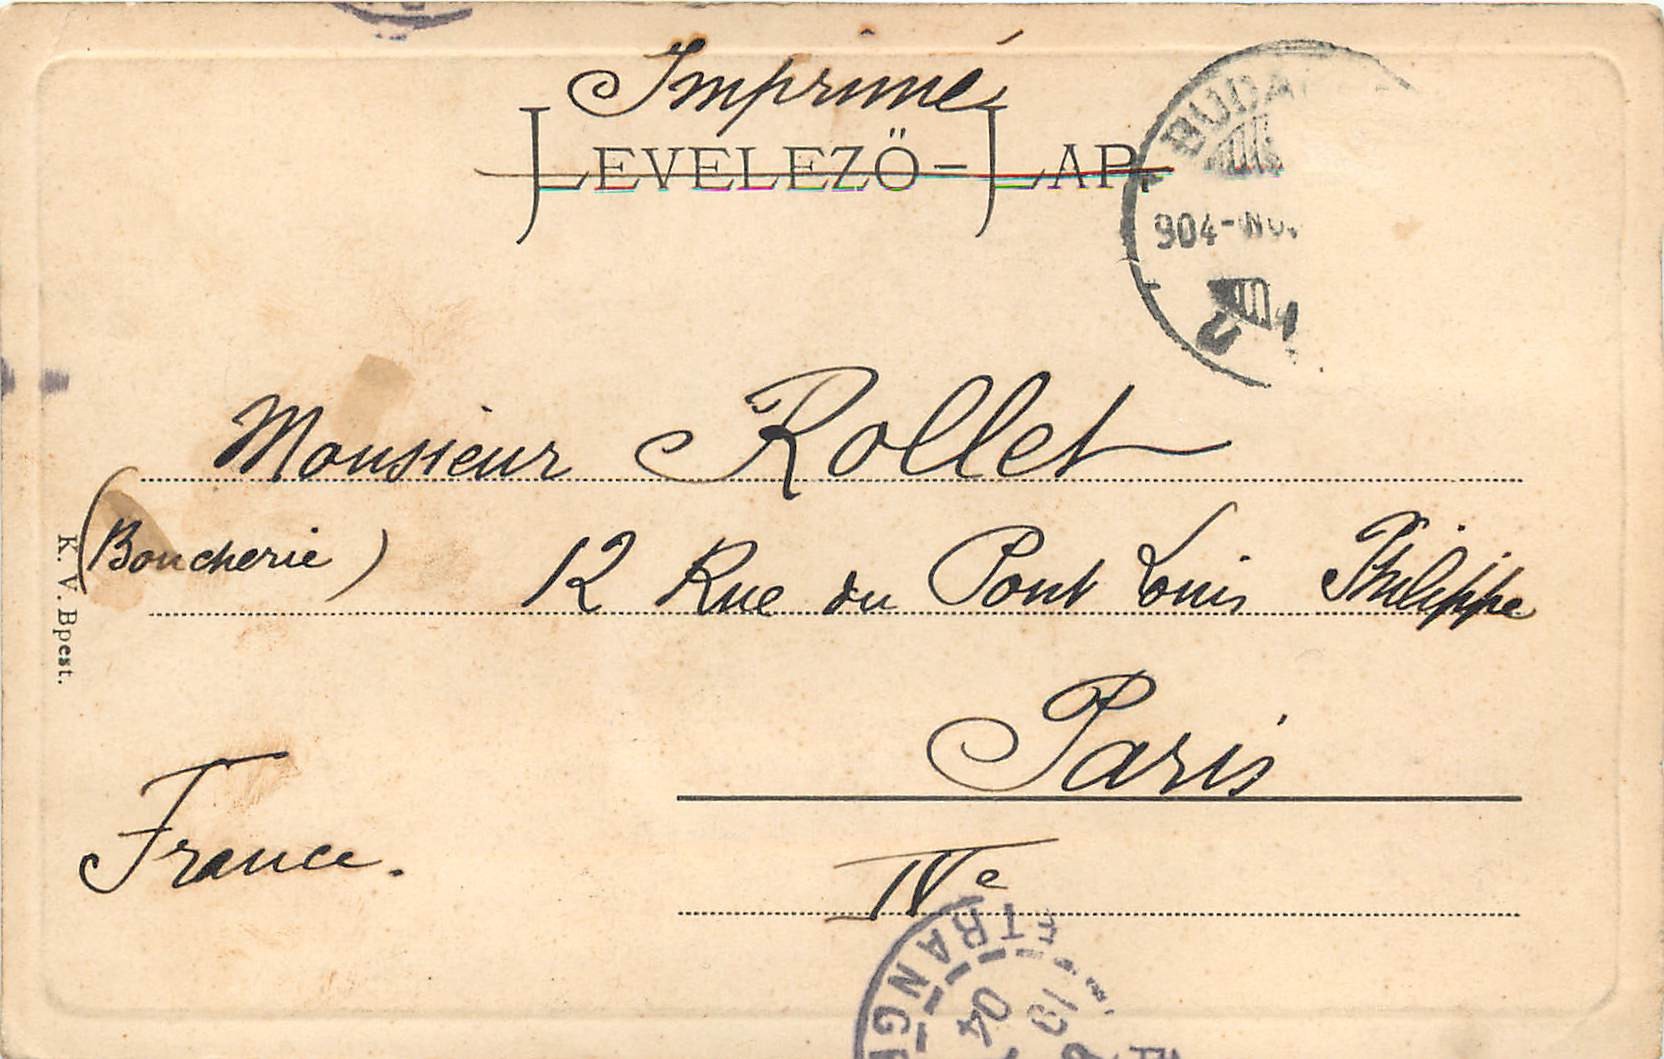 Imprimé
LEVELEZŐ-LAP.
904-NO
Monsieur Rollet
(Boucherie) 12 Rue du Pont Louis Philippe
K. V. Bpest.
Paris
France.
IVe
ETRANG
04